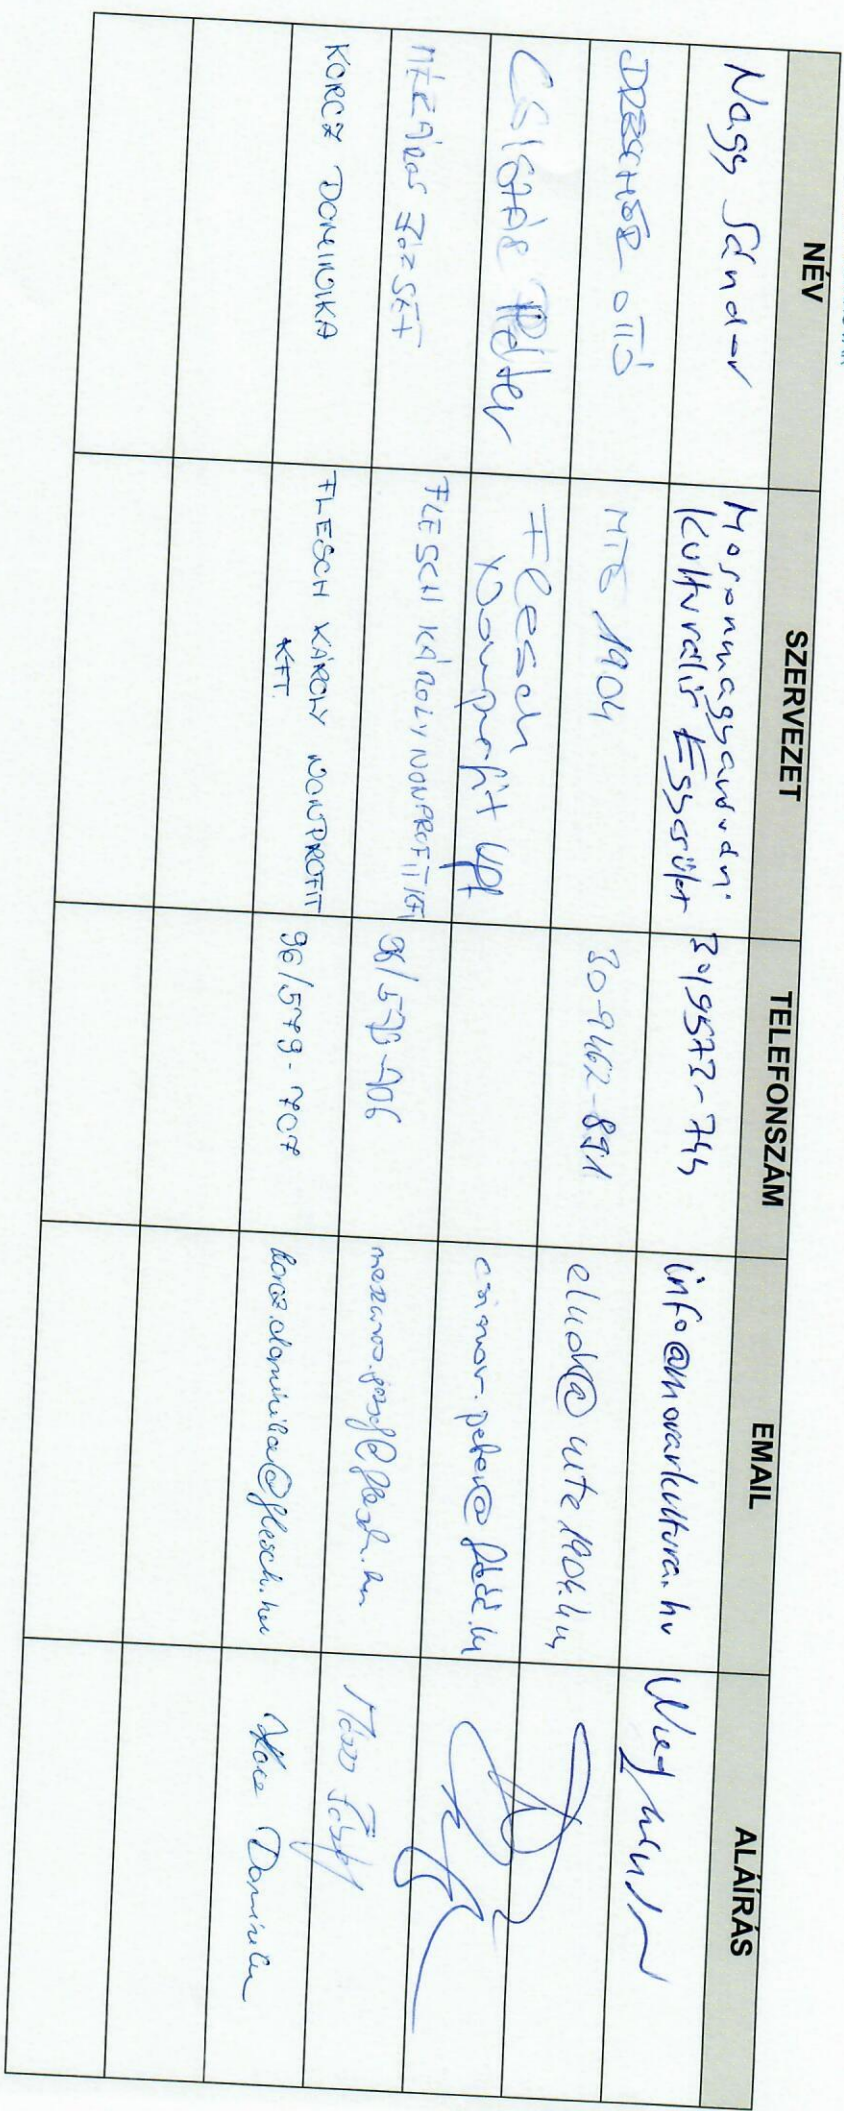 NÉV SZERVEZET TELEFONSZÁM EMAIL ALÁÍRÁS
Nagy Sándor
Mosonmagyaróvári
Kulturális Egyesület
30/9573-744
info@movarkultura.hu
DRESCHER OTTÓ
MTE 1904
30-9462-891
elnok@mte1904.hu
Péter
Flesch
Nonprofit Kft
JÓZSEF
FLESCH KÁROLY NONPROFIT KFT
meszaros.jozsef@flesch.hu
KORCZ DOMINIKA
FLESCH KÁROLY NONPROFIT
KFT.
96/579-707
korcz.dominika@flesch.hu
Korcz Dominika